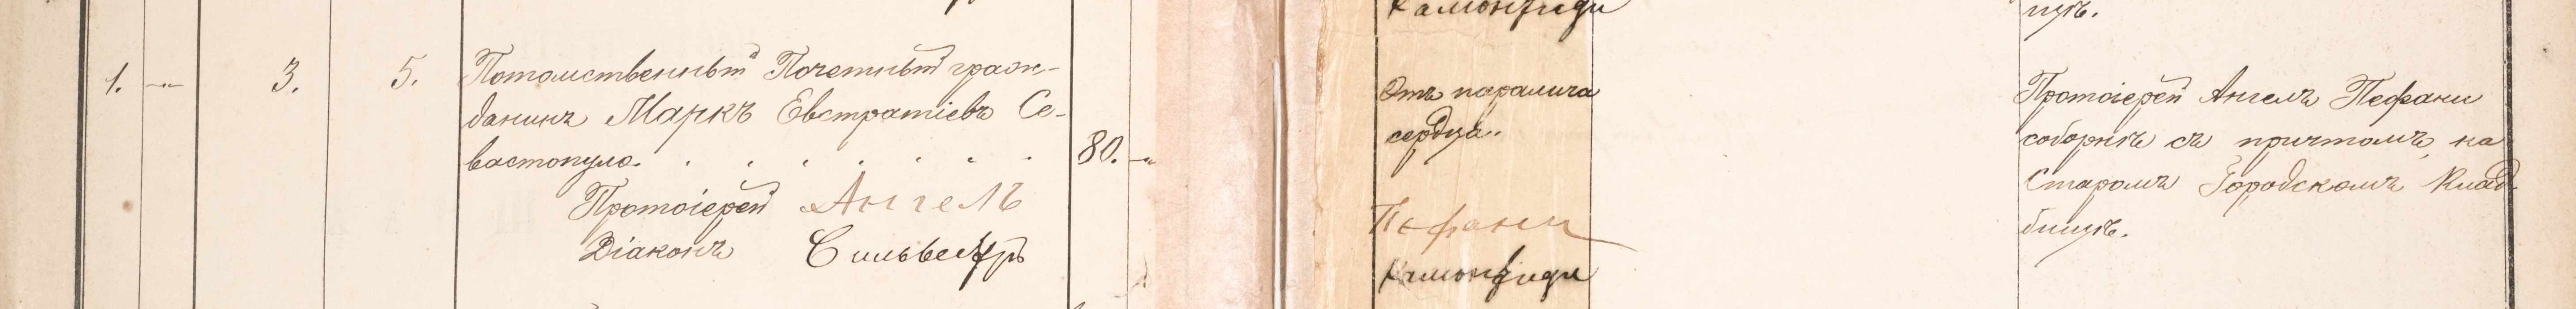 Камонфиди
щѣ.
1. -"- 3. 5. Потомственный Почетный граж-
данинъ Маркъ Евстратіевъ Се-
вастопуло. . . . . . . . 80. -"-
Протоіерей Ангелъ
Діаконъ Сильвестръ
Отъ паралича
сердца.
Пефани
Камонфиди
Протоіерей Ангелъ Пефани
соборнѣ съ причтомъ, на
Старомъ Городскомъ Клад-
бищѣ.